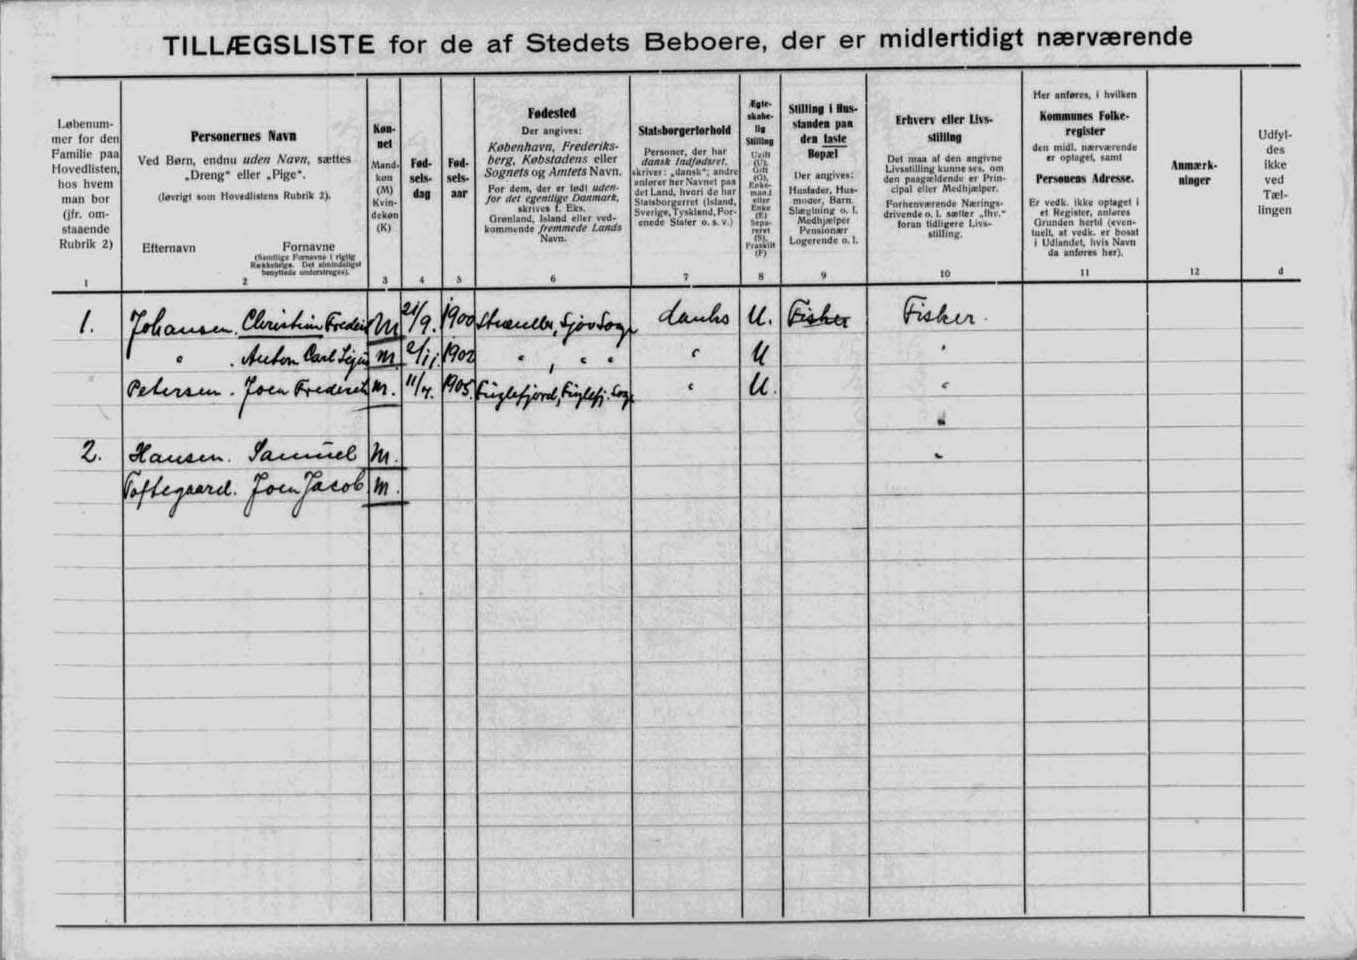 TILLÆGSLISTE for de af Stedets Beboere, der er midlertidigt nærværende
Løbenum-
mer for den
Familie paa
Hovedlisten,
hos hvem
man bor
(jfr. om-
staaende
Rubrik 2)
1
Personernes Navn
Ved Børn, endnu uden Navn, sættes
„Dreng“ eller „Pige“.
(Iøvrigt som Hovedlistens Rubrik 2).
Efternavn Fornavne
(Samtlige Fornavne i rigtig
Rækkefølge. Det almindeligst
benyttede understreges).
2
Køn-
net
Mand-
køn
(M)
Kvin-
dekøn
(K)
3
Fød-
sels-
dag
4
Fød-
sels-
aar
5
Fødested
Der angives:
København, Frederiks-
berg, Købstadens eller
Sognets og Amtets Navn.
For dem, der er født uden-
for det egentlige Danmark,
skrives f. Eks.
Grønland, Island eller ved-
kommende fremmede Lands
Navn.
6
Statsborgerforhold
Personer, der har
dansk Indfødsret,
skriver: „dansk“; andre
anfører her Navnet paa
det Land, hvori de har
Statsborgerret (Island,
Sverige, Tyskland, For-
enede Stater o. s. v.)
7
Ægte-
skabe-
lig
Stilling
Ugift
(U),
Gift
(G),
Enke-
mand
eller
Enke
(E)
Sepa-
reret
(S),
Fraskilt
(F)
8
Stilling i Hus-
standen paa
den faste
Bopæl
Der angives:
Husfader, Hus-
moder, Barn,
Slægtning o. l.
Medhjælper
Pensionær
Logerende o. l.
9
Erhverv eller Livs-
stilling
Det maa af den angivne
Livsstilling kunne ses, om
den paagældende er Prin-
cipal eller Medhjælper.
Forhenværende Nærings-
drivende o. l. sætter „fhv.“
foran tidligere Livs-
stilling.
10
Her anføres, i hvilken
Kommunes Folke-
register
den midl. nærværende
er optaget, samt
Personens Adresse.
Er vedk. ikke optaget i
et Register, anføres
Grunden hertil (even-
tuelt, at vedk. er bosat
i Udlandet, hvis Navn
da anføres her).
11
Anmærk-
ninger
12
Udfyl-
des
ikke
ved
Tæl-
lingen
d
1. Johansen. Christian Frederik M 21/9. 1900 Sjóv Sogn dansk U. Fisker Fisker.
" . Anton Carl M. 2/11. 1902 " , " " " U "
Petersen. Joen Frederik M. 11/7. 1905. Fuglefjord, Fuglefj. Sogn " U. "
"
2. Hansen. Samuel M. "
Toftegaard. Joen Jacob M.